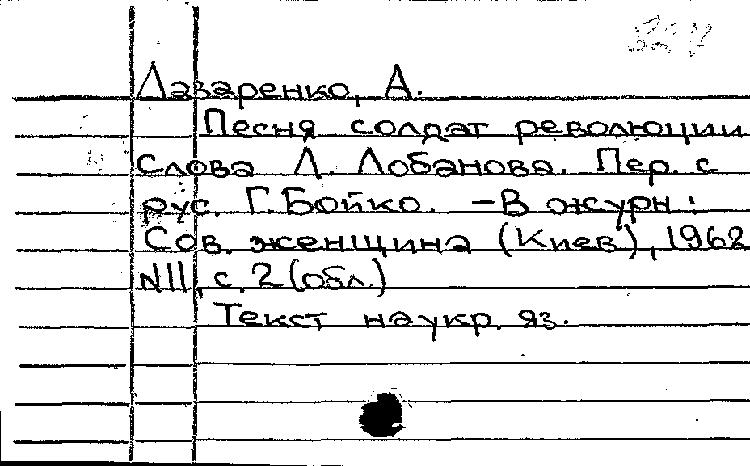 Лазаренко, А.
Песня солдат революции
Слова Л. Лобанова. Пер. с
рус. Г. Бойко. - В журн:
Сов. женщина (Киев), 1962
N11, с. 2 (обл.)
Текст на укр. яз.